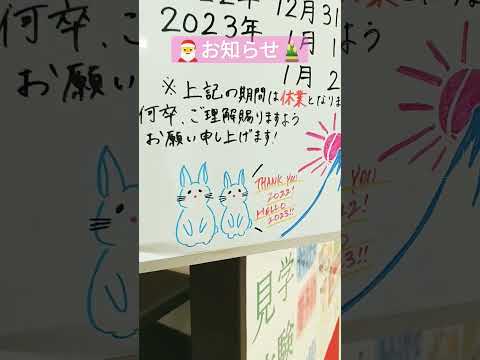 12月31
2023年
🎅お知らせ🎍
1月1
1月2
※上記の期間は休業となりま
何卒、ご理解賜りますよう
お願い申し上げます!
THANK YOU
2022!
HELLO
2023!!
見学
験